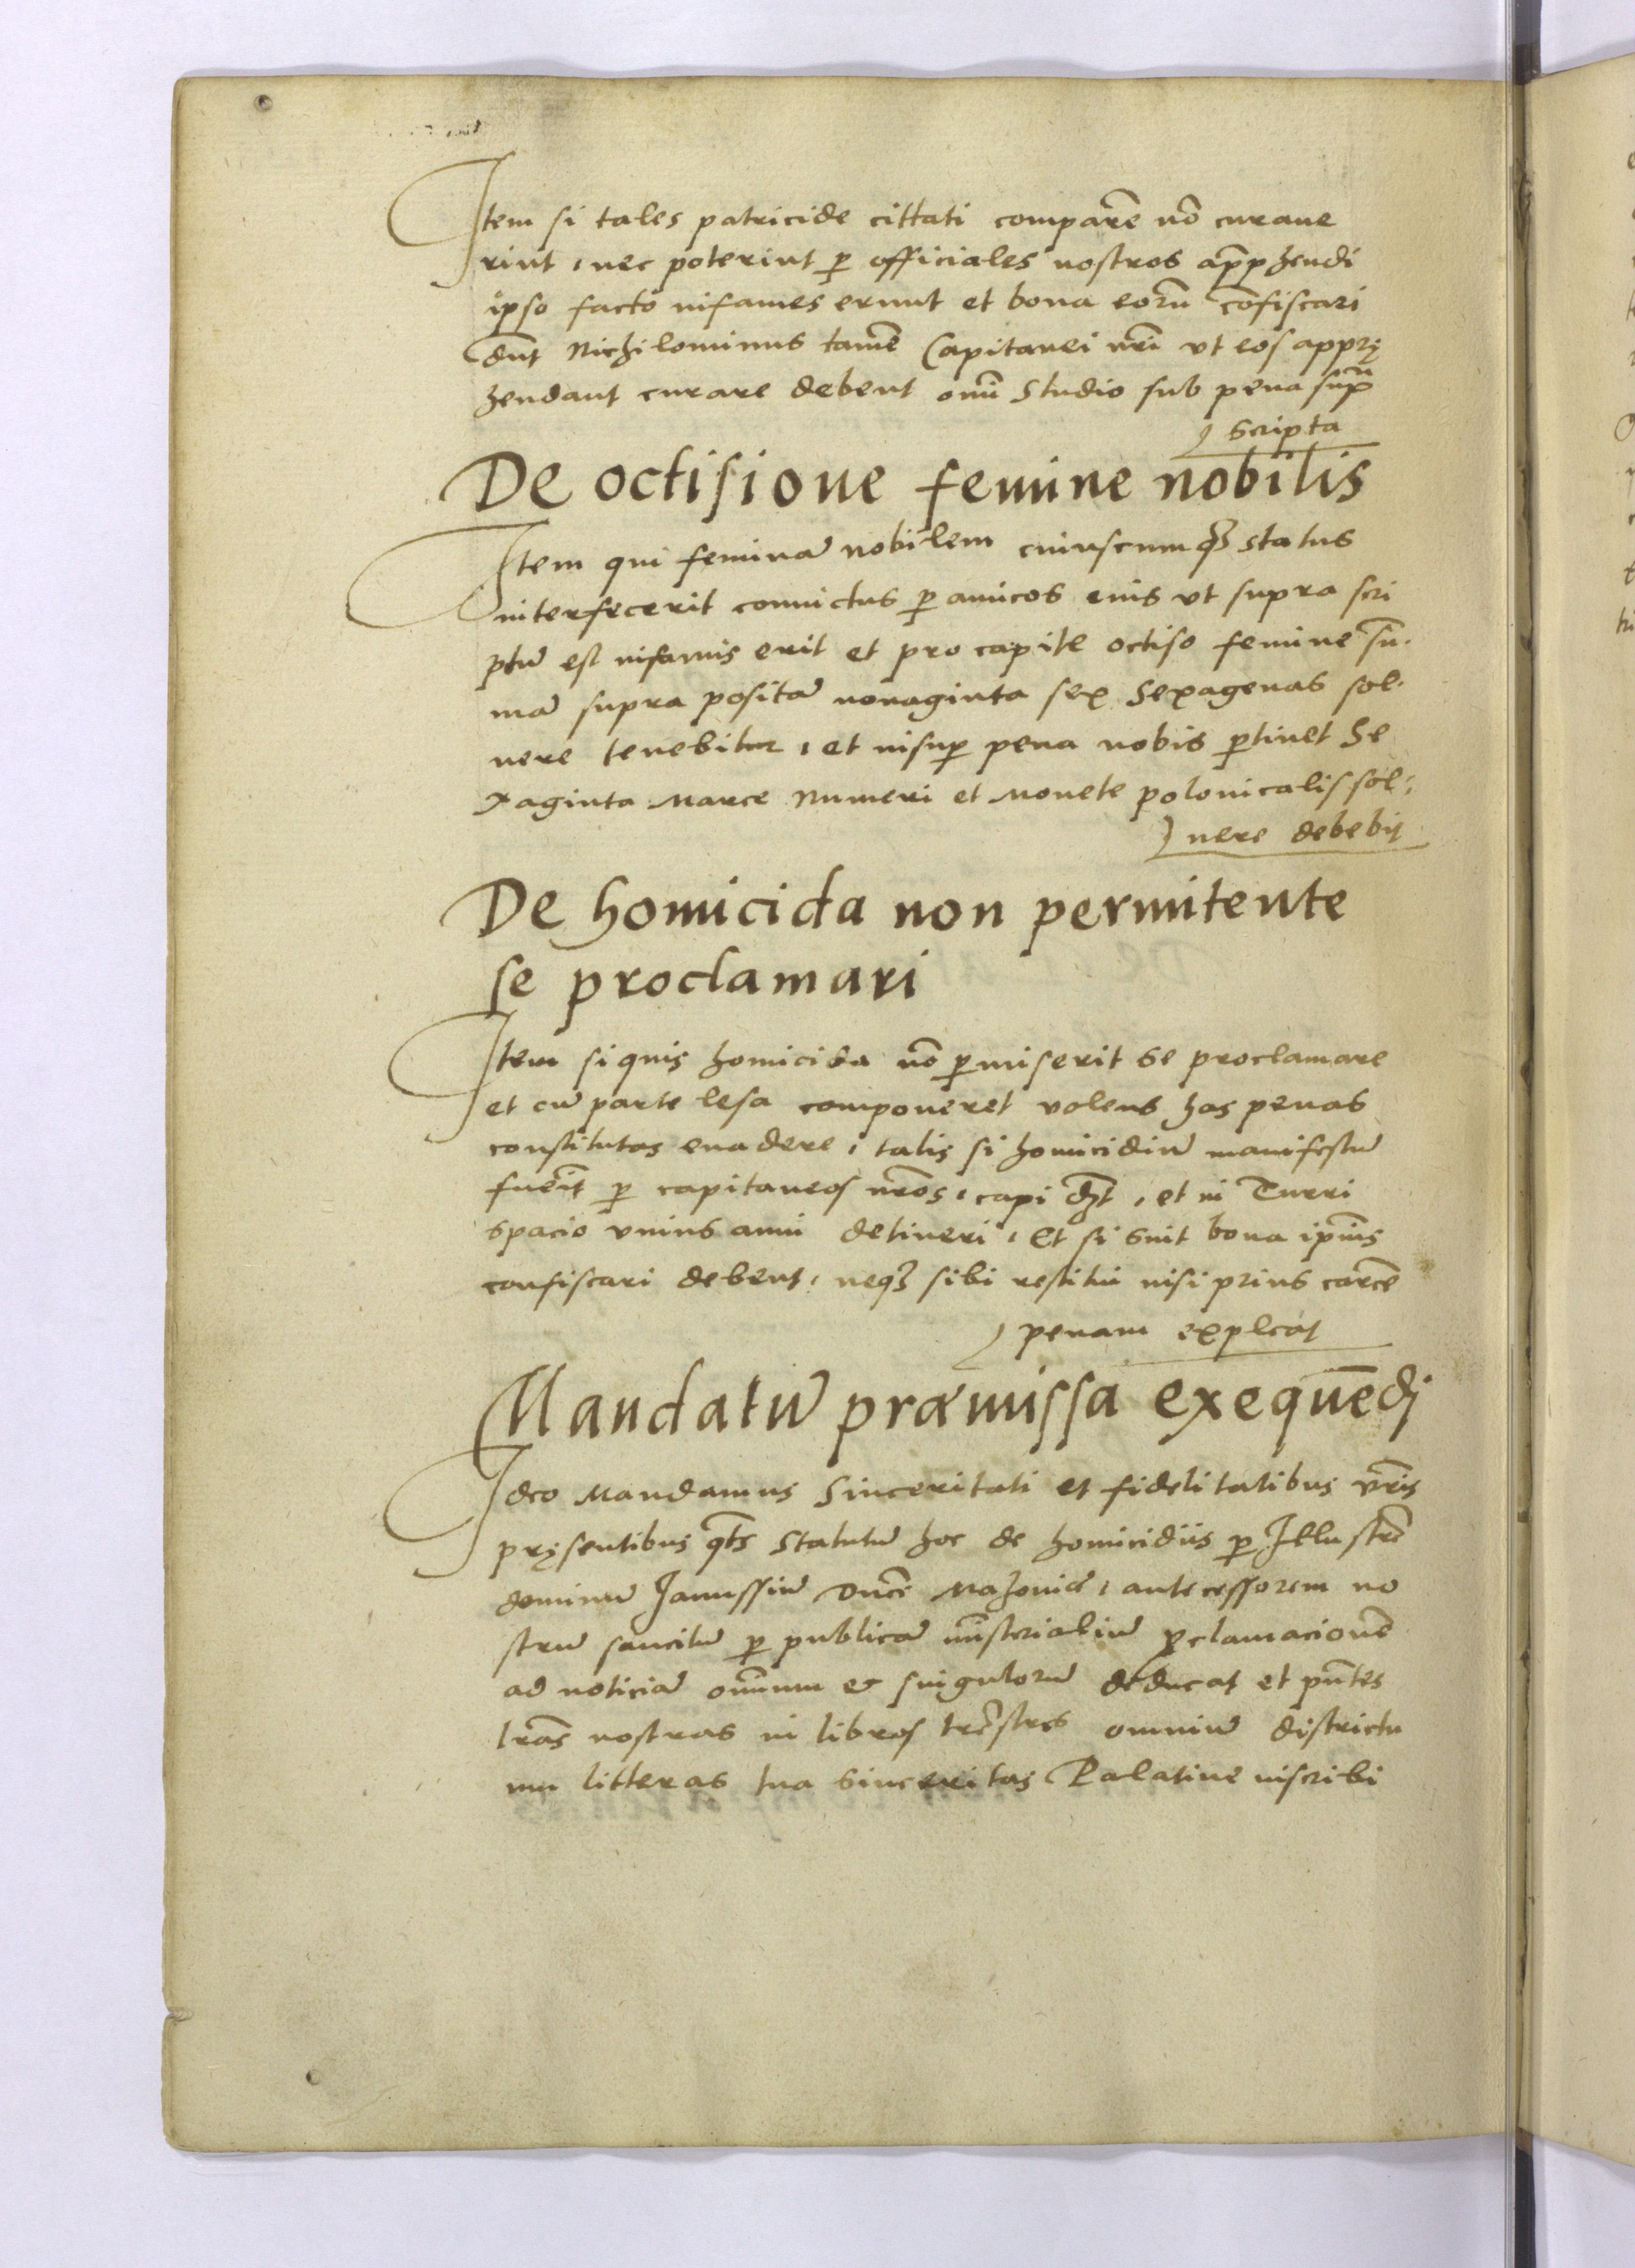 Item si tales patricide cittati comparẽ nõ curaue
rint, nec poterint ꝑ officiales nostros app̃hendi
ipso facto infames erunt et bona eorũ cõfiscari
dñt Nichilominus tamẽ Capitanei nr̃i vt eos apprę
hendant curare debent omni Studio sub pena sup̃
scripta
De octisione femine nobilis
Item qui feminã nobilem cuiuscumqꝫ status
interfecerit conuictus ꝑ amicos eius vt supra scri
ptũ est infamis erit et pro capite octiso femine sũ.
mã supra positã nonaginta sex Sexagenas sol.
uere tenebitur, et insuꝑ pena nobis ꝑtinet Se
xaginta Marce Numeri et Monete polonicalis sol:
uere debebit
De homicida non permitente
se proclamari
Item si quis homicida nõ ꝑmiserit se proclamare
et cũ parte lesa componeret volens has penas
constitutas euadere, talis si homicidiũ manifestũ
fuerit ꝑ capitaneos nr̃os, capi dꝫt, et in Turri
spacio vnius anni detineri, Et si sint bona ip̃ius
confiscari debent, neqꝫ sibi restitui nisi prius carcẽ
penam expleat
Mandatũ præmissa exequẽdi
Ideo Mandamus Sinceritati et fidelitatibus vr̃is
pręsentibus qt̃s Statutũ hoc de homicidiis ꝑ Illustrẽ
dominũ Janussiũ Ducẽ Mazouię, antecessorem no
strũ sancitũ ꝑ publicã mĩsterialiũ ꝓclamacionẽ
ad noticiã oĩnium et singulorũ deducat et pñtes
lr̃as nostras in libros trr̃estres omniũ districtu
um litteras tua sinceritas Palatine inscribi